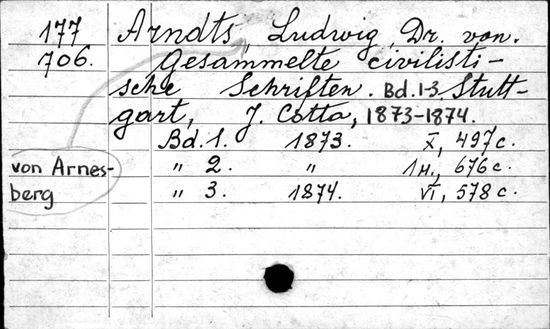 177 Arndts, Ludwig, Dr. von.
706. Gesammelte civilisti-
sche Schriften. Bd.1-3. Stutt-
gart, J. Cotta, 1873-1874.
Bd. 1. 1873. X, 497 c.
von Arnes- " 2. " 1 н., 676 c.
berg " 3. 1874. VI, 578 c.